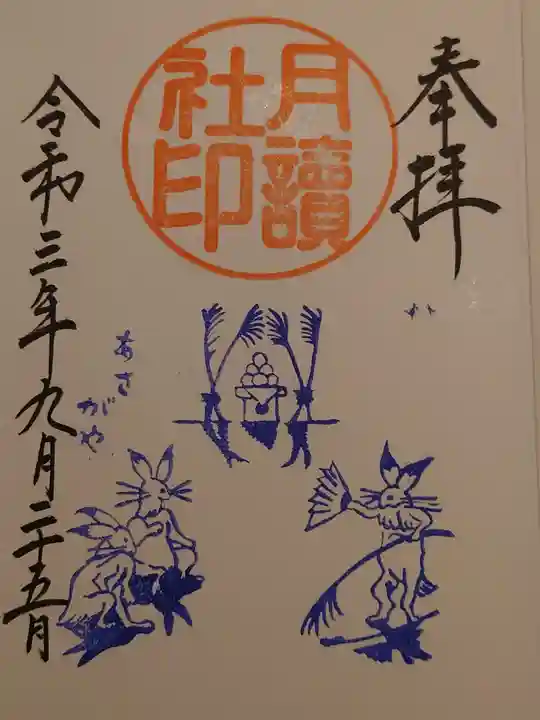 奉拝
月讀
社印
あさ
がや
令和三年九月二十五日